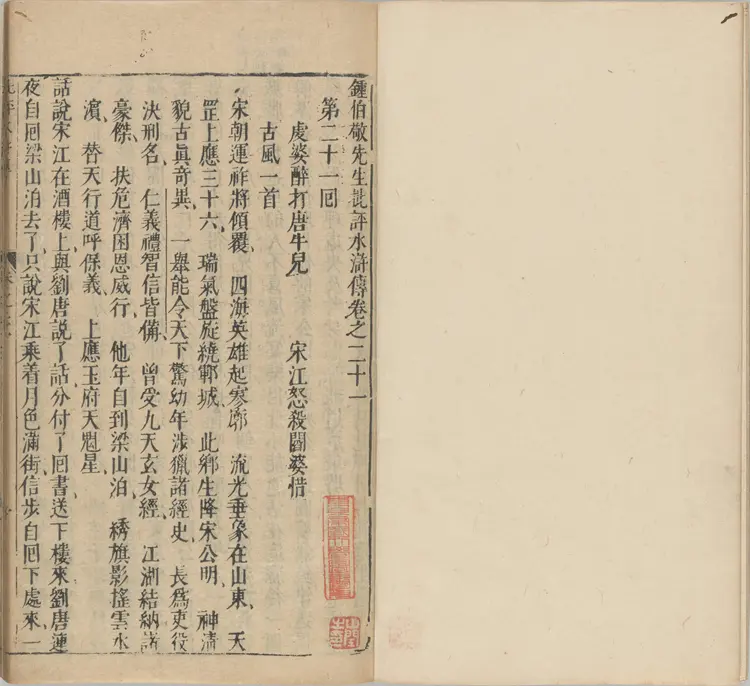 鍾伯敬先生批評水滸傳卷之二十一
第二十一囘
虔婆醉打唐牛兒　宋江怒殺閻婆惜
古風一首
宋朝運祚將傾覆　四海英雄起寥廓　流光垂象在山東　天
罡上應三十六　瑞氣盤旋繞鄆城　此鄉生降宋公明　神清
貌古眞奇異　一舉能令天下驚幼年涉獵諸經史　長爲吏役
決刑名　仁義禮智信皆備　曾受九天玄女經　江湖結納諸
豪傑　扶危濟困恩威行　他年自到梁山泊　綉旗影搖雲水
濱　替天行道呼保義　上應玉府天魁星
話說宋江在酒樓上與劉唐說了話分付了囘書送下樓來劉唐連
夜自囘梁山泊去了只說宋江乘着月色滿街信步自囘下處來一